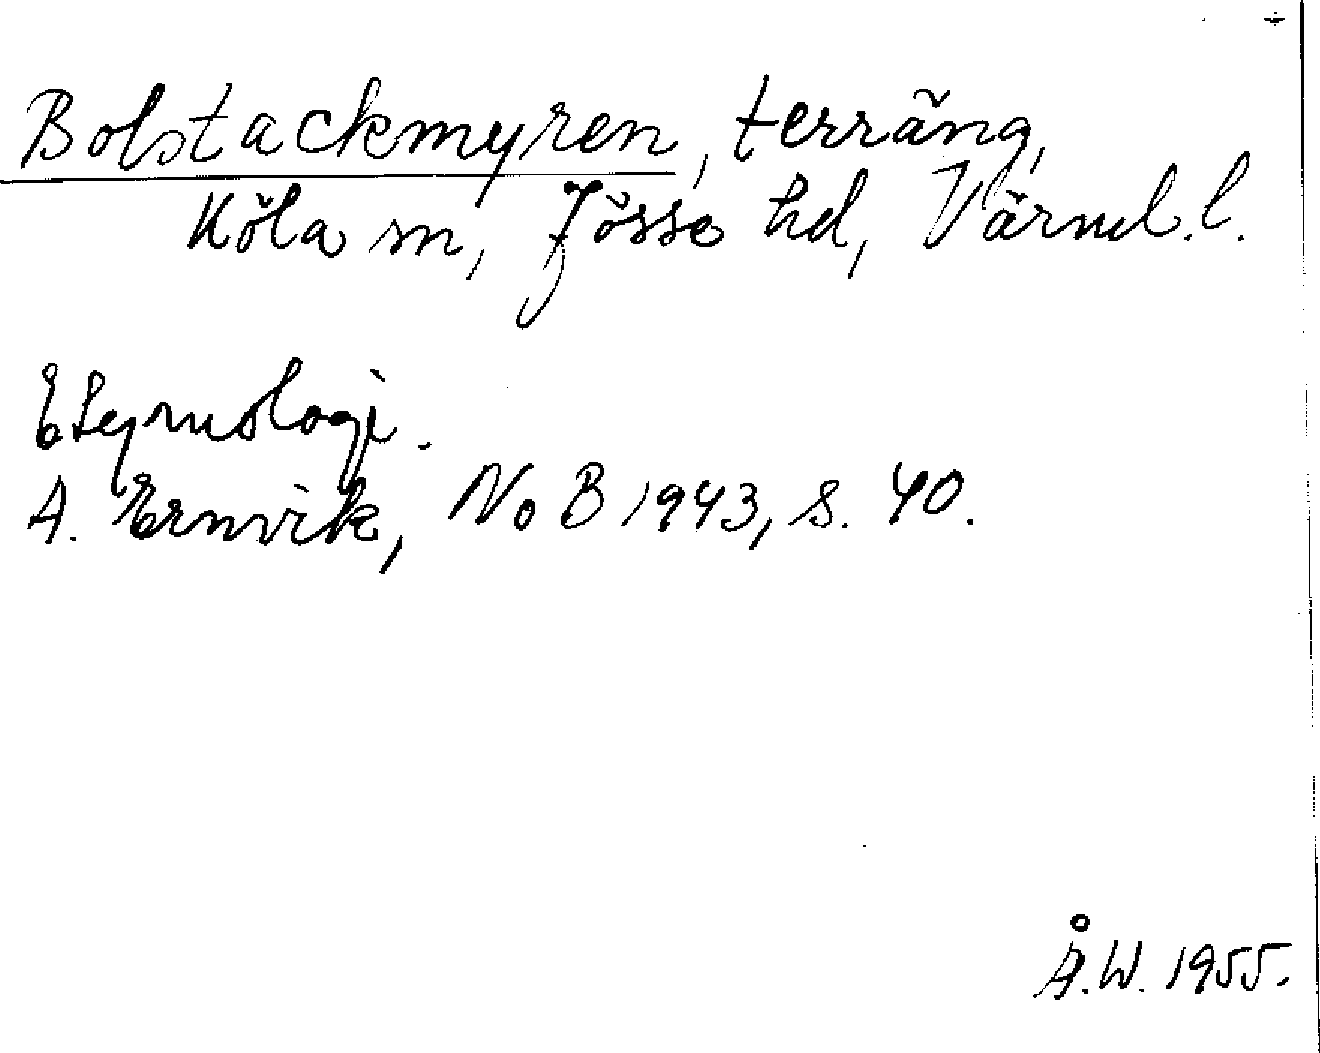 Bolstackmyren, terräng,
Köla sn, Jösse hd, Värml. l.
Etymologi.
A. Ernvik, NoB 1943, s. 40.
Å.W. 1955.